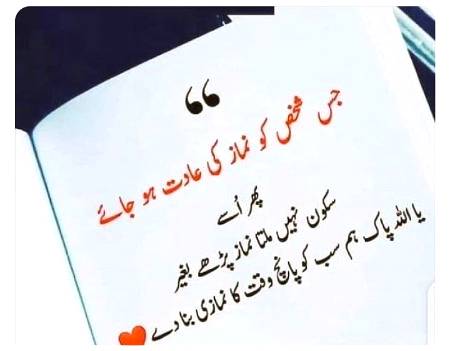 ❝
جس شخص کو نماز کی عادت ہو جائے
پھر اُسے
سکون نہیں ملتا نماز پڑھے بغیر
یا اللہ پاک ہم سب کو پانچ وقت کا نمازی بنا دے ❤